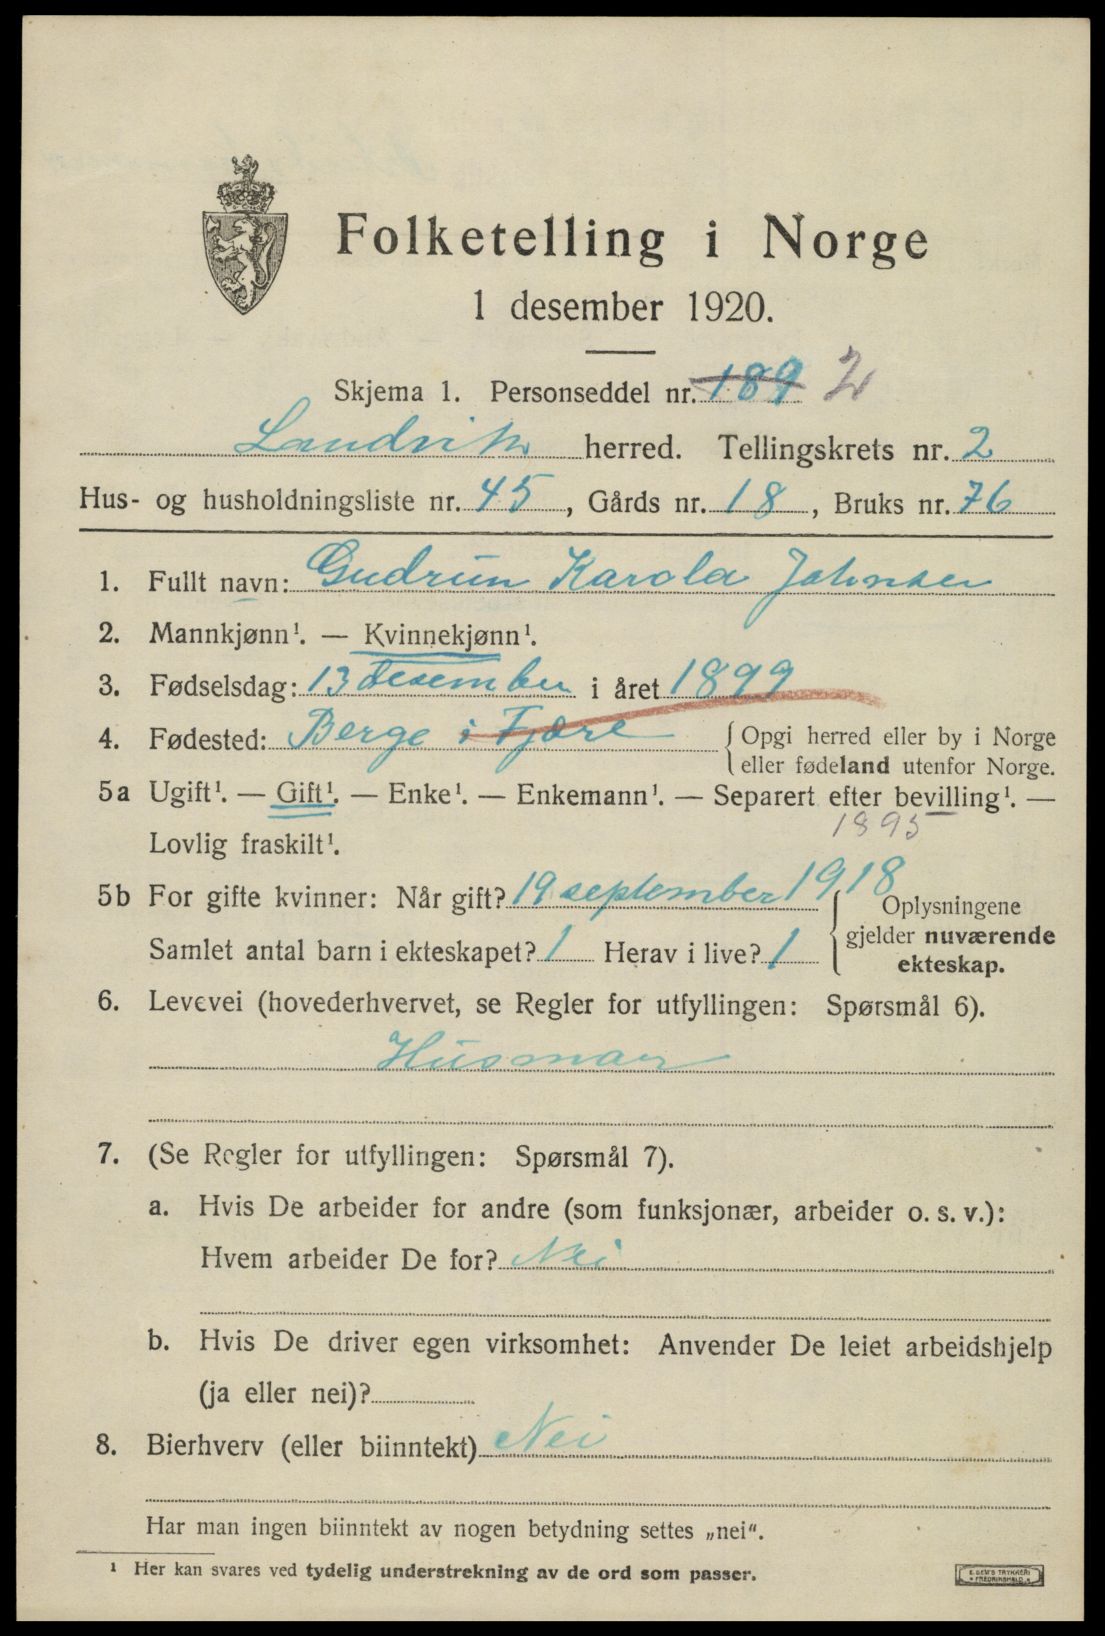 Folketelling i Norge
1 desember 1920.
Skjema 1. Personseddel nr. 189 2
Landvik herred. Tellingskrets nr. 2
Hus- og husholdningsliste nr. 45, Gårds nr. 18, Bruks nr. 76
1. Fullt navn: Gudrun Karola Johnsen
2. Mannkjønn¹. — Kvinnekjønn¹.
3. Fødselsdag: 13 desember i året 1899
4. Fødested: Berge i Fjære { Opgi herred eller by i Norge
eller fødeland utenfor Norge.
5a Ugift¹. — Gift¹. — Enke¹. — Enkemann¹. — Separert efter bevilling¹. —
Lovlig fraskilt¹. 1895
5b For gifte kvinner: Når gift? 19 september 1918 { Oplysningene
gjelder nuværende
ekteskap.
Samlet antal barn i ekteskapet? 1 Herav i live? 1
6. Levevei (hovederhvervet, se Regler for utfyllingen: Spørsmål 6).
Husmaer
7. (Se Regler for utfyllingen: Spørsmål 7).
a. Hvis De arbeider for andre (som funksjonær, arbeider o. s. v.):
Hvem arbeider De for? Nei
b. Hvis De driver egen virksomhet: Anvender De leiet arbeidshjelp
(ja eller nei)?
8. Bierhverv (eller biinntekt) Nei
Har man ingen biinntekt av nogen betydning settes „nei“.
¹ Her kan svares ved tydelig understrekning av de ord som passer.
E. SEM'S TRYKKERI
FREDRIKSHALD